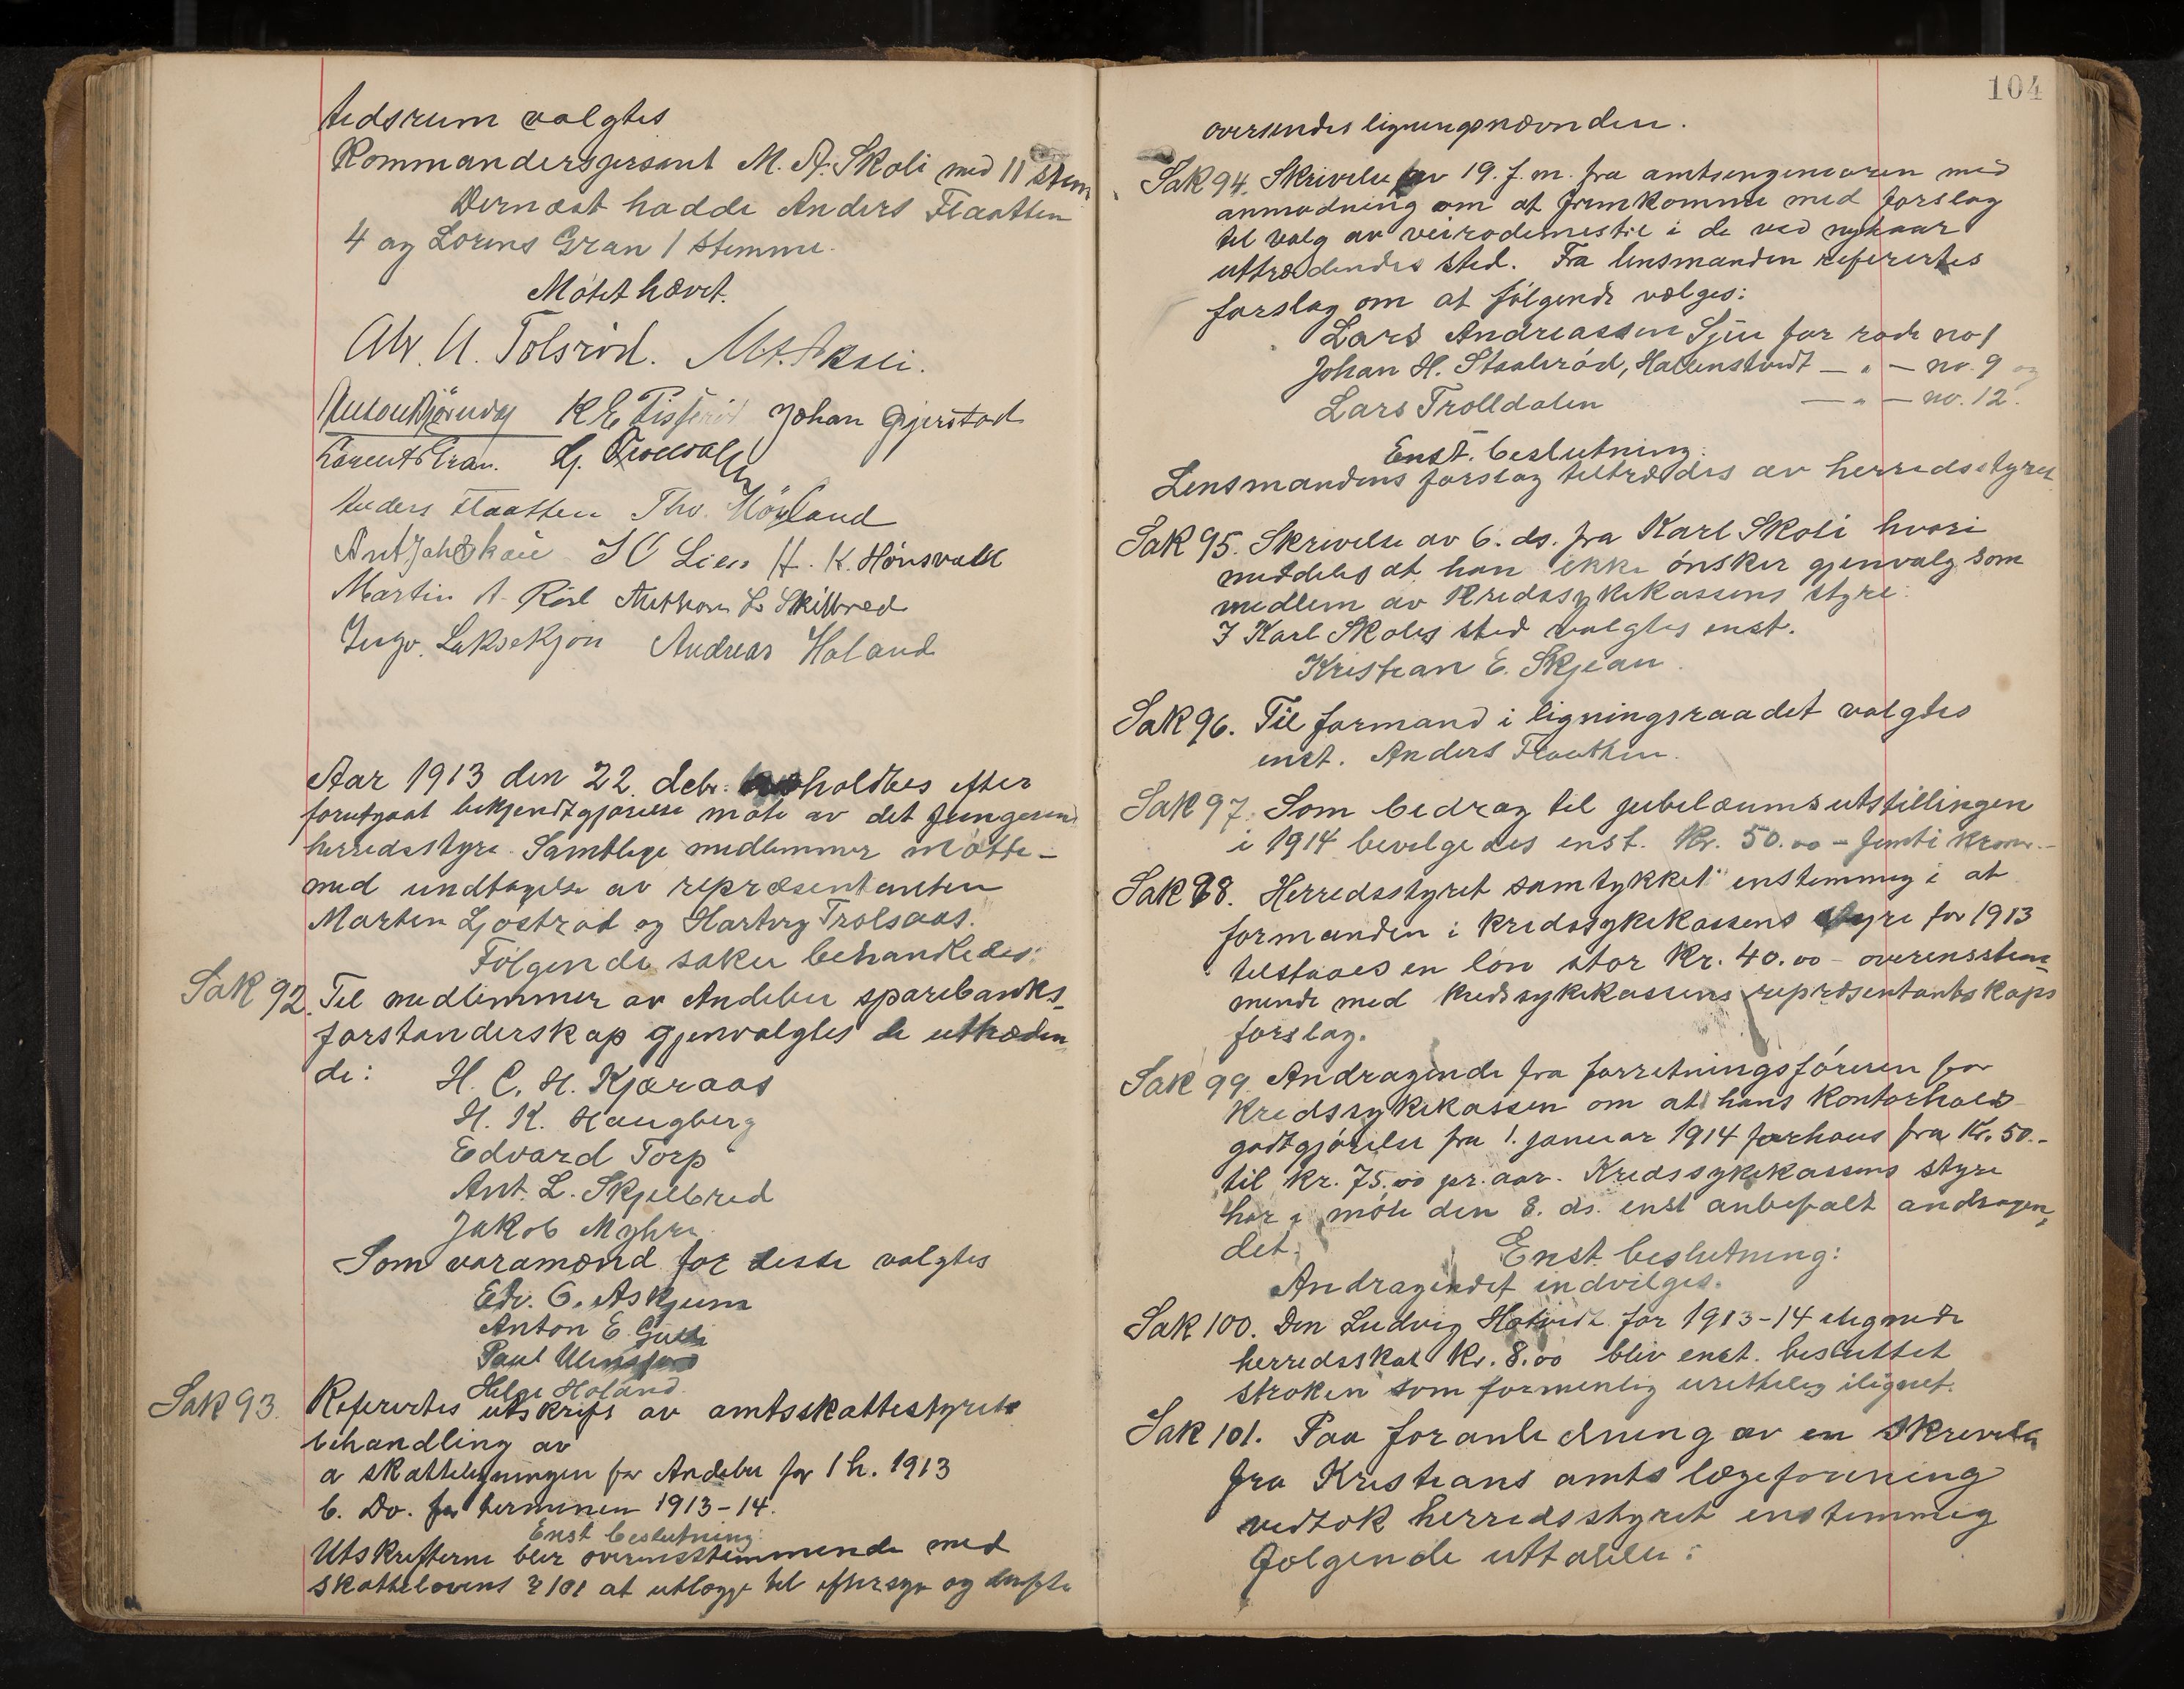 tidsrum valgtes
Kommandersersant M. A. Skoli med 11 stem
Dernæst hadde Anders Flaatten
4 og Lorens Gran 1 stemme.
Møtet hævet.
Alv. A. Tolsrød. M. A. Skoli.
K E Johan Gjerstad
Laurents Gran. G. Trolldalen
Anders Flaatten Thv. Møyland
Ant Joh Skaue Lien H. K. Hönsvald
Martin A. Röd Anthon L. Skilbred
Ingv. Lakseskjön Andreas Holand
Aar 1913 den 22. debr. holdtes efter
forutgaat bekjendtgjørelse møte av det fungerend
herredsstyre. Samtlige medlemmer møtte -
med undtagelse av repræsentanten
Martin Gjøstrød og Hartvig Trolsaas.
Følgende saker behandledes:
Sak 92. Til medlemmer av Andebu sparebanks
forstanderskap gjenvalgtes de uttræden
de: H. C. H. Kjæraas
H. K. Haugberg
Edvard Torp
Ant. L. Skjelbred
Jakob Myhre
Som varamænd for disse valgtes
Edv. E. Askjem
Anton E. Gulli
Paul
Helge Holand.
Sak 93. Refertes utskrift av amtsskattestyrets
behandling av
a skatteligningen for Andebu for 1 h. 1913
b. Do. for terminen 1913-14.
Enst beslutning:
Utskrifterne blir overensstemmende med
skattelovens § 101 at utlægge til eftersyn og derefter
104
oversendes ligningsnævnden.
Sak 94. Skrivelse av 19. f. m. fra amtsingeniøren med
anmodning om at fremkomme med forslag
til valg av veirodemestre i de ved nytaar
uttrædendes sted. Fra lensmanden refertes
forslag om at følgende vælges:
Lars Andreassen Sjue for rode no 1
Johan H. Staalerød, Hallenstvedt — " — no. 9 og
Lars Trolldalen — " — no. 12.
Enst. beslutning:
Lensmandens forslag tiltrædes av herredsstyret
Sak 95. Skrivelse av 6. ds. fra Karl Skoli hvori
meddeles at han ikke ønsker gjenvalg som
medlem av Kredssykekassens styre.
I Karl Skolis sted valgtes enst.
Kristian E. Skjeau.
Sak 96. Til formand i ligningsraadet valgtes
enst. Anders Flaathen.
Sak 97. Som bedrag til jubelæumsutstillingen
i 1914 bevilgedes enst. Kr. 50.00 - femti kroner.-
Sak 98. Herredsstyret samtykket enstemmig i at
formanden i kredssykekassens styre for 1913
tilstaaes en løn stor Kr. 40.00 - overensstem=
mende med kredssykekassens repræsentantskaps
forslag.
Sak 99. Andragende fra forretningsføreren for
Kredssykekassen om at hans kontorhold
godtgjørelse fra 1. januar 1914 forhøies fra Kr. 50.-
til kr. 75.00 pr. aar. Kredssykekassens styre
har i møte den 8. ds. enst anbefalt andragen,
det. Enst. beslutning:
Andragendet indvilges.
Sak 100. Den Ludvig Hotvedt for 1913-14 ilignede
herredsskat Kr. 8.00 blir enst. besluttet
strøken som formentlig urettelig ilignet.
Sak 101. Paa foranledning av en skrivelse
fra Kristians amts lægeforening
vedtok herredsstyret enstemmig
følgende uttalelse: